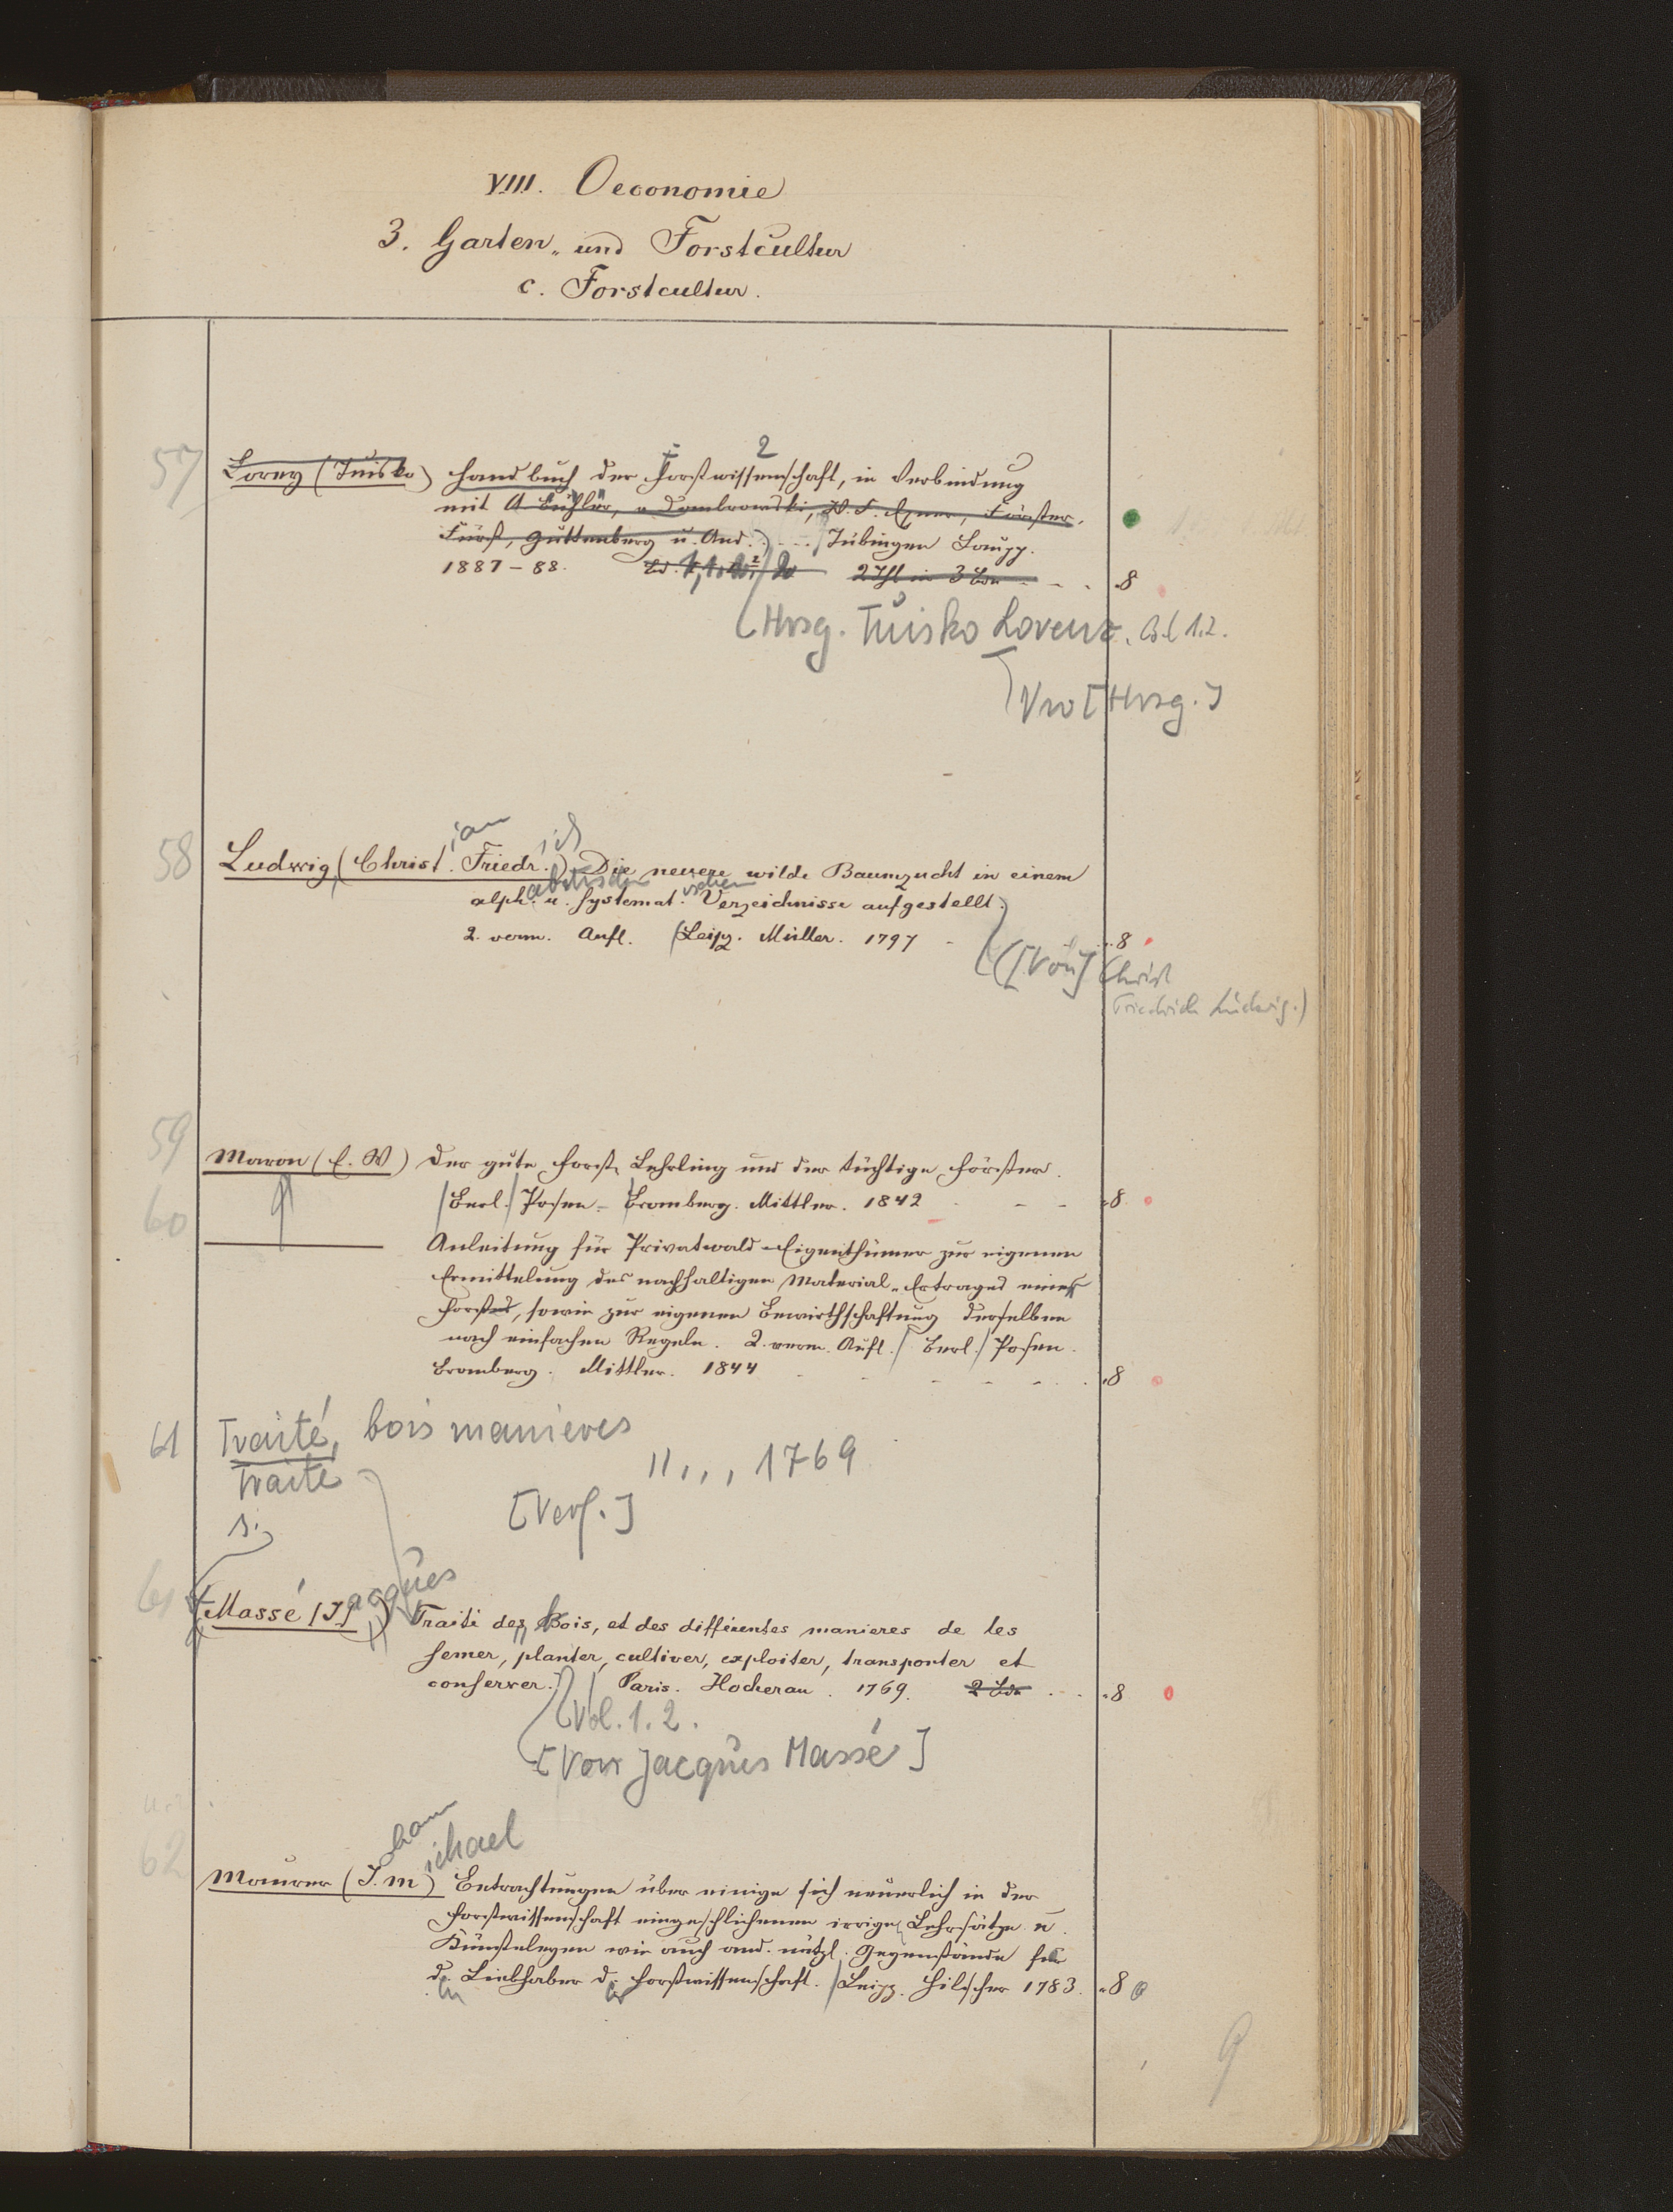 VIII. Oeconomie
3. Garten- und Forstcultur
c. Forstcultur.
57 Lorey (Tuisko) Handbuch der Forstwissenschaft, in Verbindung
mit A Bühler, v Dombrowski, W. F. Exner, Förster,
Fürst, Guttenberg u. And. Tübingen Laupp.
1887-88. 2 Thl in 3 Bdn 8
[Hrsg. Tuisko Lorenz. Bd 1.2.
Vw [Hrsg.]
58 Ludwig (Christ.ian Friedr.ich) Die neuere wilde Baumzucht in einem
alph.abetischen u. systemat.ischen Verzeichnisse aufgestellt.
2. verm. Aufl. Leipz. Müller. 1797 8
([Von] Christ
Friedrich Ludwig.)
59 Maron (E. W) Der gute Forst-Lehrling und der tüchtige Förster.
Berl. Posen - Bromberg. Mittler. 1842 8
60 Anleitung für Privatwald-Eigenthümer zur eigenen
Ermittelung des nachhaltigen Material-Ertrages eines
Forstes, sowie zur eigenen Bewirthschaftung derselben
nach einfachen Regeln. 2. verm. Aufl. Berl. Posen.
Bromberg. Mittler. 1844 8
61 Traité, bois manieres
Traité 11,,, 1769
s. [Verf.]
61 Massé [J]acques Traité des Bois, et des différentes manieres de les
semer, planter, cultiver, exploiter, transporter et
conserver. Paris. Hocherau. 1769. 2 Bde 8
Vol. 1. 2.
[Von Jacques Massé]
62 Maurer (J.ohann M.ichael) Betrachtungen über einige sich neuerlich in der
Forstwissenschaft eingeschlichenen irrige Lehrsätze u.
Künsteleyen wie auch and. nützl. Gegenstände für
d. Liebhaber d. Forstwissenschaft. Leipz. Hilscher 1783. 8
9